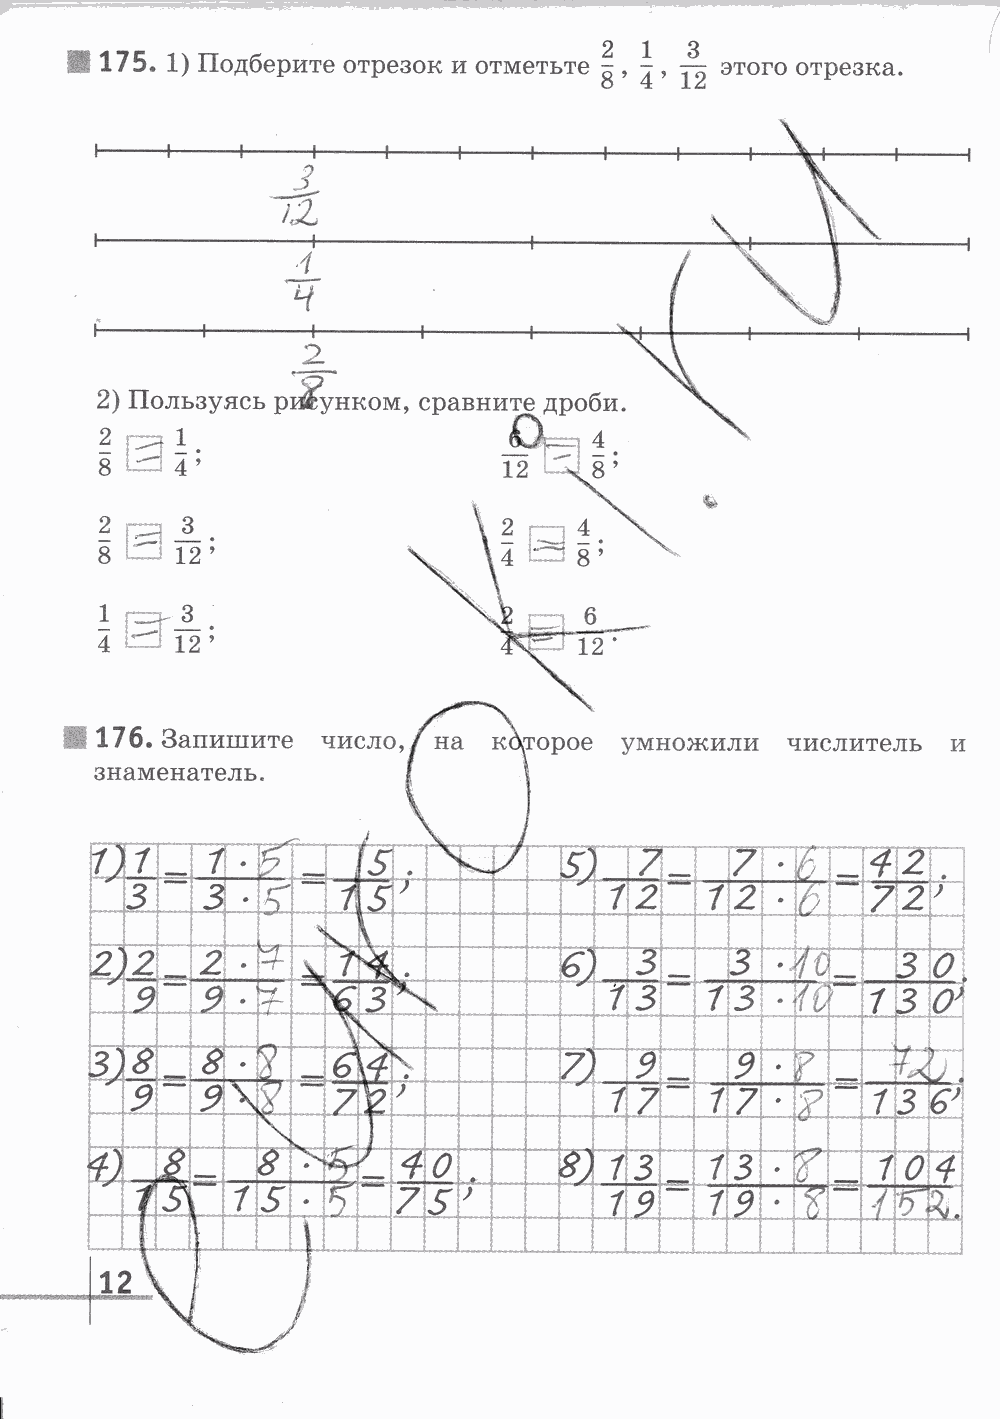 175. 1) Подберите отрезок и отметьте 2/8, 1/4, 3/12 этого отрезка.
3/12
1/4
2/8
2) Пользуясь рисунком, сравните дроби.
2/8 = 1/4; 6/12 = 4/8;
2/8 = 3/12; 2/4 = 4/8;
1/4 = 3/12; 2/4 = 6/12.
176. Запишите число, на которое умножили числитель и
знаменатель.
1) 1/3 = 1·5/3·5 = 5/15; 5) 7/12 = 7·6/12·6 = 42/72;
2) 2/9 = 2·7/9·7 = 14/63; 6) 3/13 = 3·10/13·10 = 30/130;
3) 8/9 = 8·8/9·8 = 64/72; 7) 9/17 = 9·8/17·8 = 72/136;
4) 8/15 = 8·5/15·5 = 40/75; 8) 13/19 = 13·8/19·8 = 104/152.
12